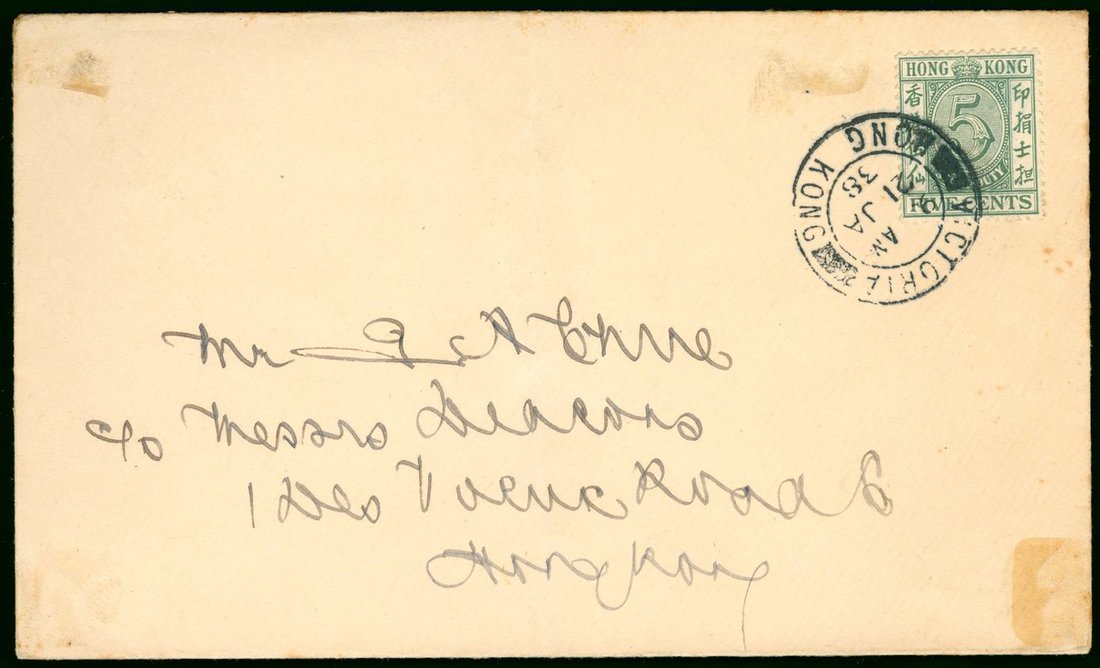 HONG KONG
香
印捐士担
5
DUTY
FIVE CENTS
VICTORIA
HONG KONG
AM
JA
21
38
Mr A
c/o Messrs Deacons
1 Des Voeux Road C
Hong Kong